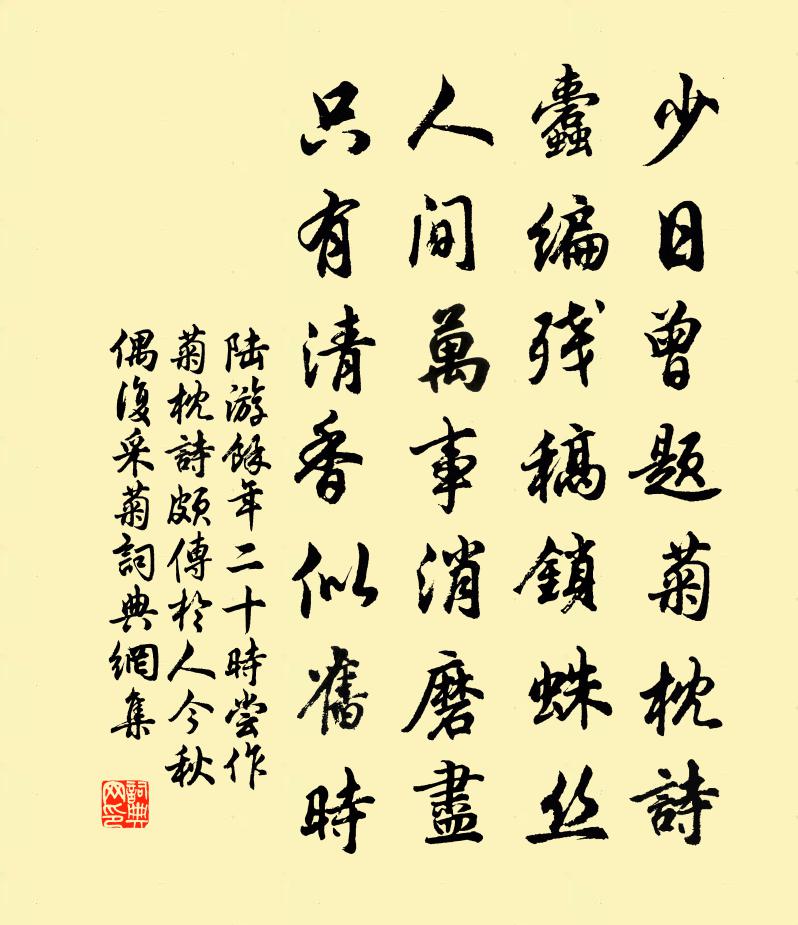 少日曾题菊枕詩
蠹編残稿鎖蛛丝
人间萬事消磨盡
只有清香似舊時
陆游餘年二十時尝作
菊枕詩頗傳於人今秋
偶復采菊詞典網集
詞典
网印